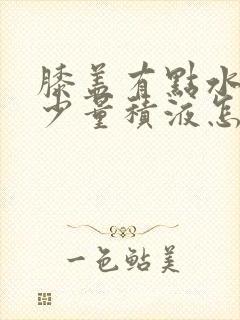 膝盖有點水
少量積液怎
一色鲇美